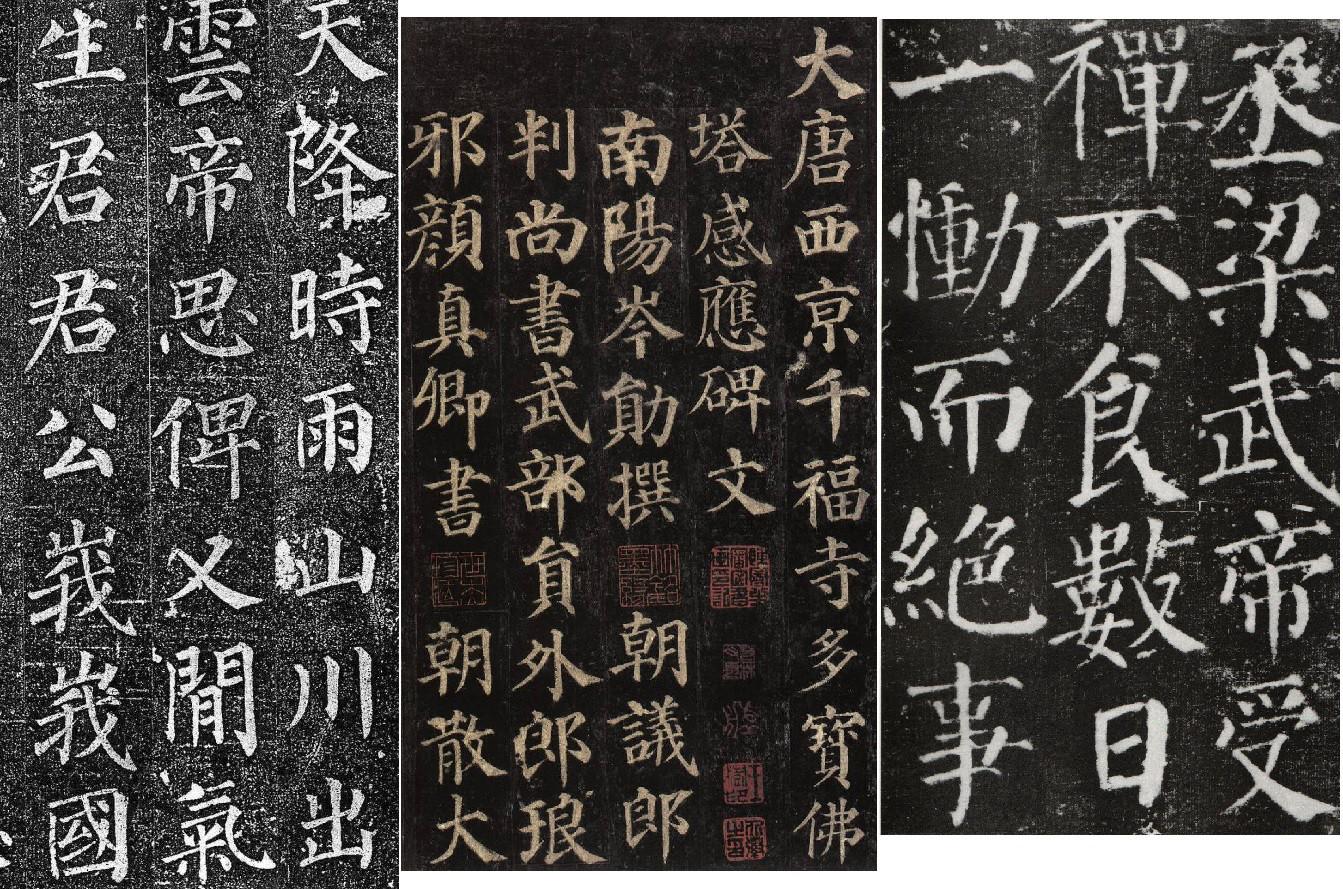 天降時雨山川出
雲帝思俾乂閒氣
生君君公峩峩國
大唐西京千福寺多寶佛
塔感應碑文
南陽岑勛撰 朝議郎
判尚書武部員外郎琅
邪顏真卿書 朝散大
丞梁武帝受
禪不食數日
一慟而絕事